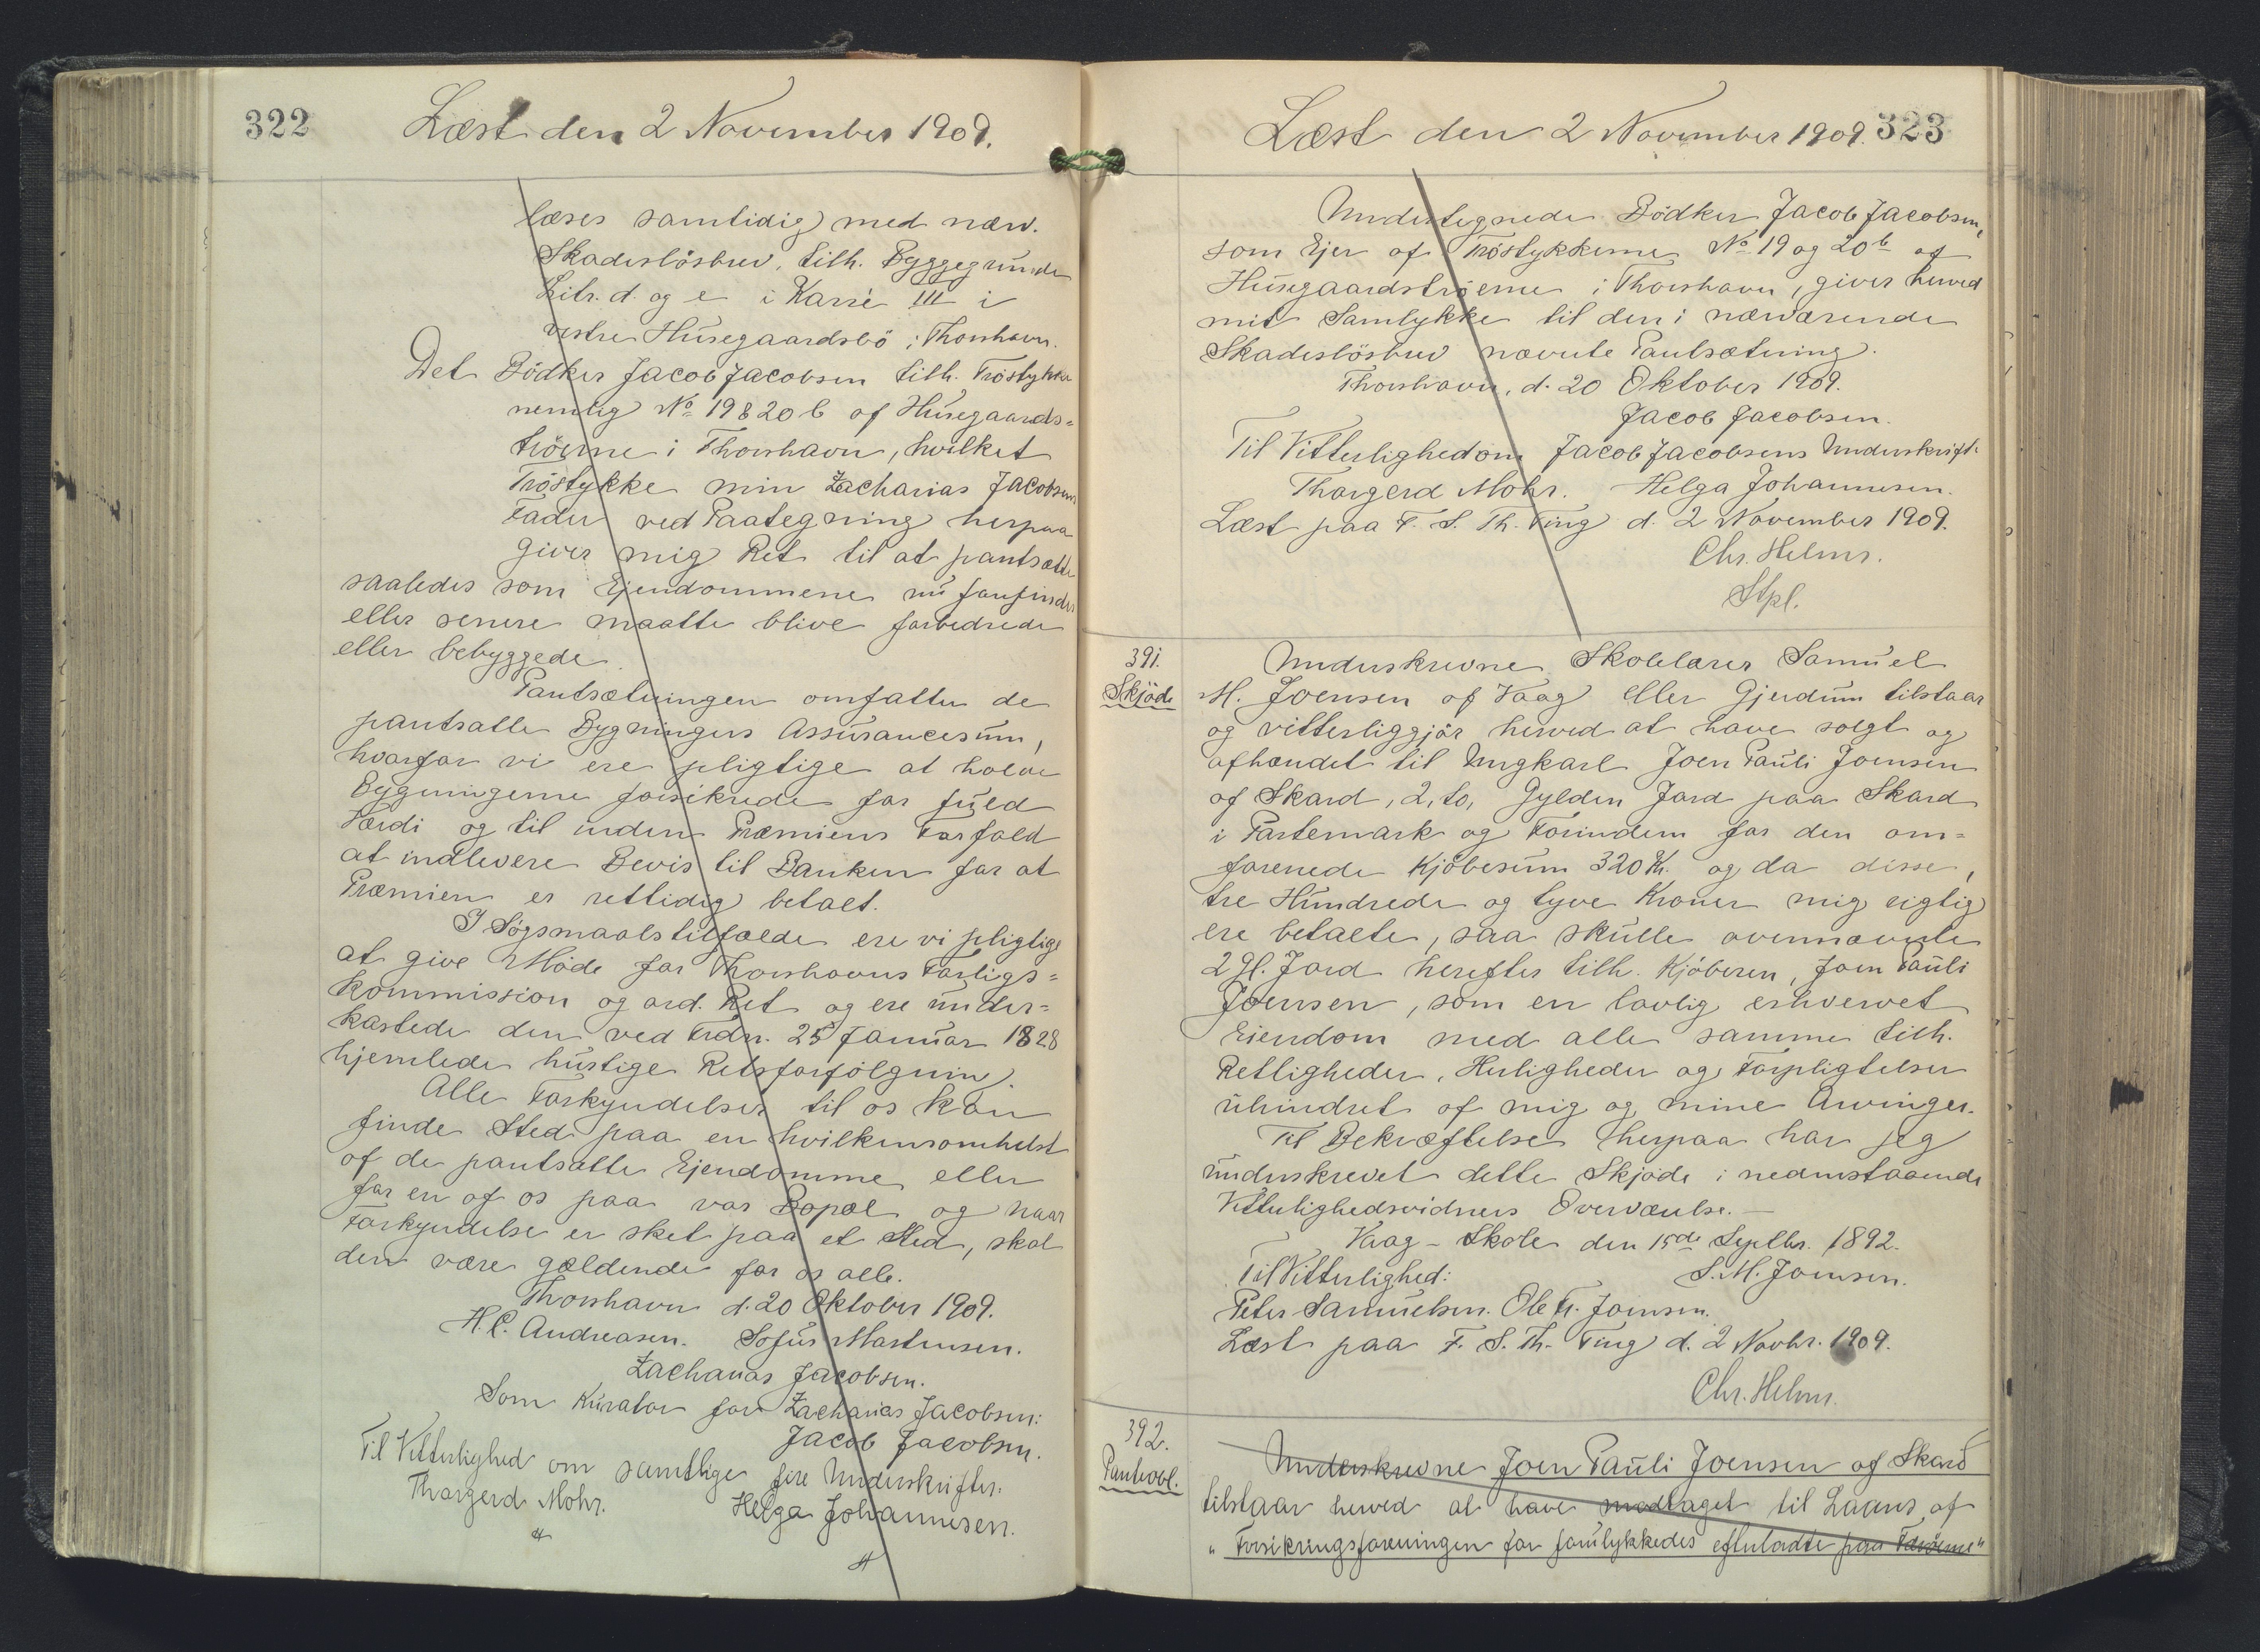 322
Læst den 2 November 1909.
læses samtidig med nærv.
Skadesløsbrev, tilh. Byggegrunde
Litr. d. og e i Karré III i
vestre Húsegaardsbö i Thorshavn.
Det Bödker Jacob Jacobsen tilh. Tröstykke
nemlig No 19 & 20 b af Húsegaards-
tröerne i Thorshavn, hvilket
Tröstykke min Zacharias Jacobsens
Fader ved Paategning herpaa
giver mig Ret til at pantsætte
saaledes som Ejendommene nú forefindes
eller senere maatte blive forbedrede
eller bebyggede.
Pantsætningen omfatter de
pantsatte Bygningers Assúrancesúm,
hvorfor vi ere pligtige at holde
Bygningerne forsikrede for fúld
Værdi og til inden Præmiens Forfald
at indlevere Bevis til Banken for at
Præmien er rettidig betalt.
I Søgsmaalstilfælde ere vi pligtige
at give Möde for Thorshavns Forligs-
kommission og ord. Ret og ere únder-
kastede den ved Frdn. 25 Janúar 1828
hjemlede húrtige Retsforfølgning.
Alle Forkyndelser til os kan
finde Sted paa en hvilkensomhelst
af de pantsatte Ejendomme eller
for en af os paa vor Bopæl og naar
Forkyndelse er sket paa et Sted, skal
den være gældende for os alle.
Thorshavn d. 20 Oktober 1909.
H. C. Andreasen. Sofús Martensen.
Zacharias Jacobsen.
Som Kúrator for Zacharias Jacobsen:
Jacob Jacobsen.
Til Vitterlighed om samtlige fire Underskrifter:
Thorgerd Mohr. Helga Johannesen.
Læst den 2 November 1909. 323
Undertegnede Bödker Jacob Jacobsen,
som Ejer af Tröstykkerne No 19 og 20b af
Húsegaardströerne i Thorshavn, giver herved
mit Samtykke til den i nærværende
Skadesløsbrev nævnte Pantsætning.
Thorshavn, d. 20 Oktober 1909.
Jacob Jacobsen.
Til Vitterlighed om Jacob Jacobsens Underskrift:
Thorgerd Mohr. Helga Johannesen.
Læst paa F. S. Th. Ting d. 2 November 1909.
Chr. Helms.
Stpl.
391.
Skjöde
Underskrevne Skolelærer Samúel
M. Joensen af Vaag eller Gjerdúm tilstaar
og vitterliggjör herved at have solgt og
afhændet til Ungkarl Joen Paúli Joensen
af Skard, 2, to, Gylden Jord paa Skard
i Partemark og Forindem for den om-
forenede Kjöbesúm 320 Kr. og da disse,
tre Húndrede og tyve Kroner mig rigtig
ere betalte, saa skúlle ovennævnte
2 Gl. Jord herefter tilh. Kjöberen, Joen Paúli
Joensen, som en lovlig erhvervet
Eiendom med alle samme tilh.
Rettigheder, Herligheder og Forpligtelser
úhindret af mig og mine Arvinger.
Til Bekræftelse herpaa har jeg
únderskrevet dette Skjöde i nedenstaaende
Vitterlighedsvidners Overværelse.—
Vaag-Skole den 15de Septbr. 1892.
Til Vitterlighed: S. M. Joensen.
Peter Samúelsen. Ole Fr. Joensen.
Læst paa F. S. Th. Ting d. 2 Novbr. 1909.
Chr. Helms.
392.
Pantobl.
Underskrevne Joen Paúli Joensen af Skard
tilstaar herved at have modtaget til Laans af
"Forsikringsforeningen for forúlykkedes efterladte paa Færöerne"